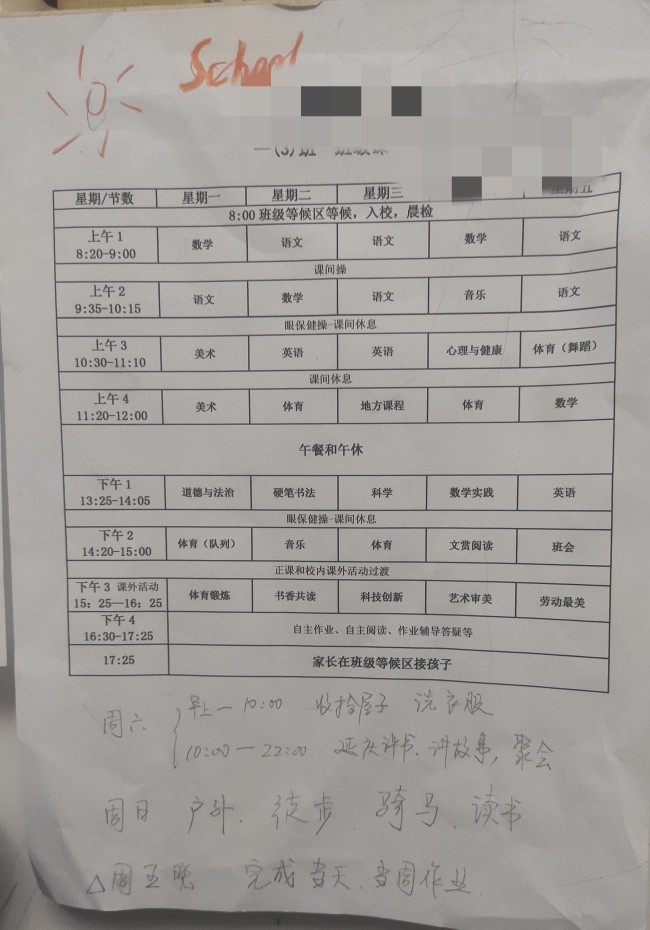 School
一(3)班 班级课
星期/节数 星期一 星期二 星期三 星期五
8:00 班级等候区等候，入校，晨检
上午1 8:20-9:00 数学 语文 语文 数学 语文
课间操
上午2 9:35-10:15 语文 数学 语文 音乐 语文
眼保健操-课间休息
上午3 10:30-11:10 美术 英语 英语 心理与健康 体育（舞蹈）
课间休息
上午4 11:20-12:00 美术 体育 地方课程 体育 数学
午餐和午休
下午1 13:25-14:05 道德与法治 硬笔书法 科学 数学实践 英语
眼保健操-课间休息
下午2 14:20-15:00 体育（队列） 音乐 体育 文赏阅读 班会
正课和校内课外活动过渡
下午3 课外活动 15：25—16：25 体育锻炼 书香共读 科技创新 艺术审美 劳动最美
下午4 16:30-17:25 自主作业、自主阅读、作业辅导答疑等
17:25 家长在班级等候区接孩子
周六 早上—10:00 收拾屋子 洗衣服
10:00—22:00 延庆讲书、讲故事，聚会
周日 户外、徒步、骑马、读书
△周五晚 完成当天、当周作业